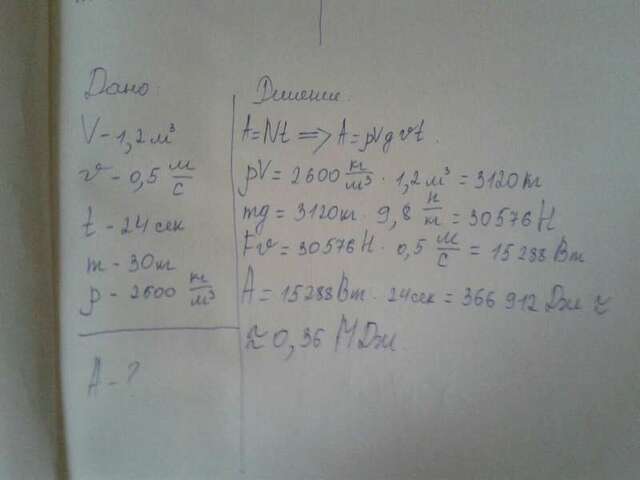 Дано:
V - 1,2 м³
v - 0,5 м/с
t - 24 сек
m - 30 кг
р - 2600 кг/м³
А - ?
Решение.
А = Nt => А = pVg vt.
pV = 2600 кг/м³ · 1,2 м³ = 3120 кг
mg = 3120 кг · 9,8 Н/кг = 30576 Н
Fv = 30576 Н · 0,5 м/с = 15288 Вт
А = 15288 Вт · 24 сек = 366 912 Дж ≈
≈ 0,36 МДж.